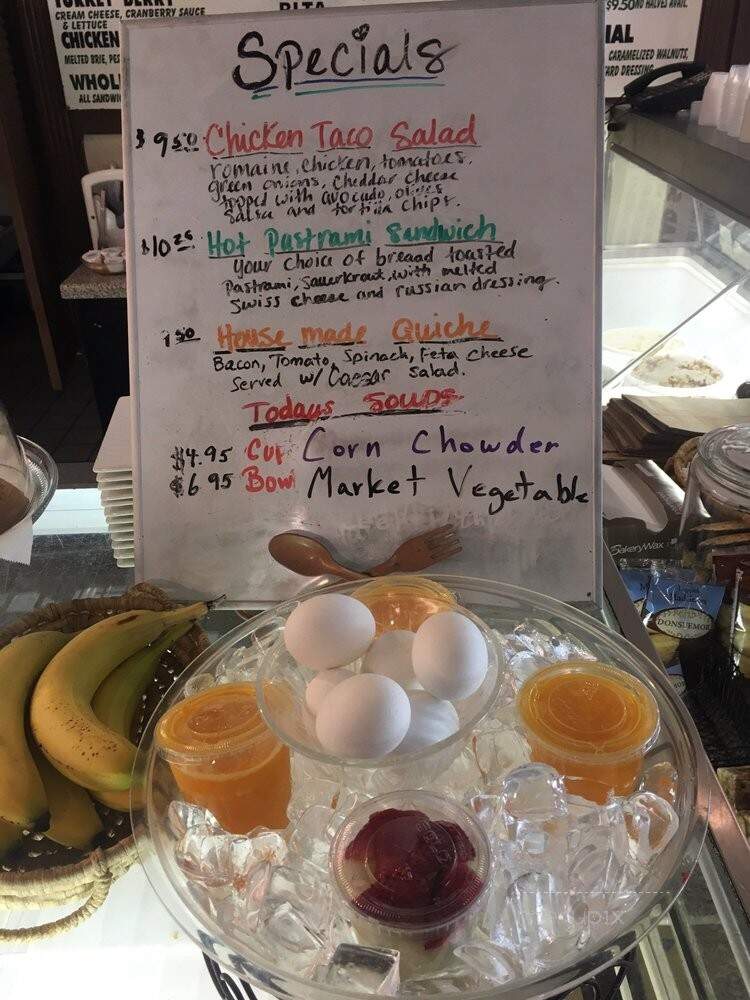 CREAM CHEESE, CRANBERRY SAUCE
& LETTUCE
CHICKEN
MELTED BRIE, PES
WHOL
ALL SANDWI
$9.50 NO HALVES AVAIL.
CARAMELIZED WALNUTS,
ARD DRESSING
Specials
$9.50 Chicken Taco Salad
romaine, chicken, tomatoes,
green onions, cheddar cheese
topped with avocado, olives
Salsa and tortilla chips.
$10.25 Hot Pastrami Sandwich
Your choice of breaad toasted
Pastrami, Sauerkraut, with melted
Swiss cheese and russian dressing.
7.50 House made Quiche
Bacon, Tomato, Spinach, Feta cheese
Served w/ Caesar Salad.
Todays Soups
$4.95 Cup Corn Chowder
$6.95 Bowl Market Vegetable
BakeryWax
DONSUEMOR